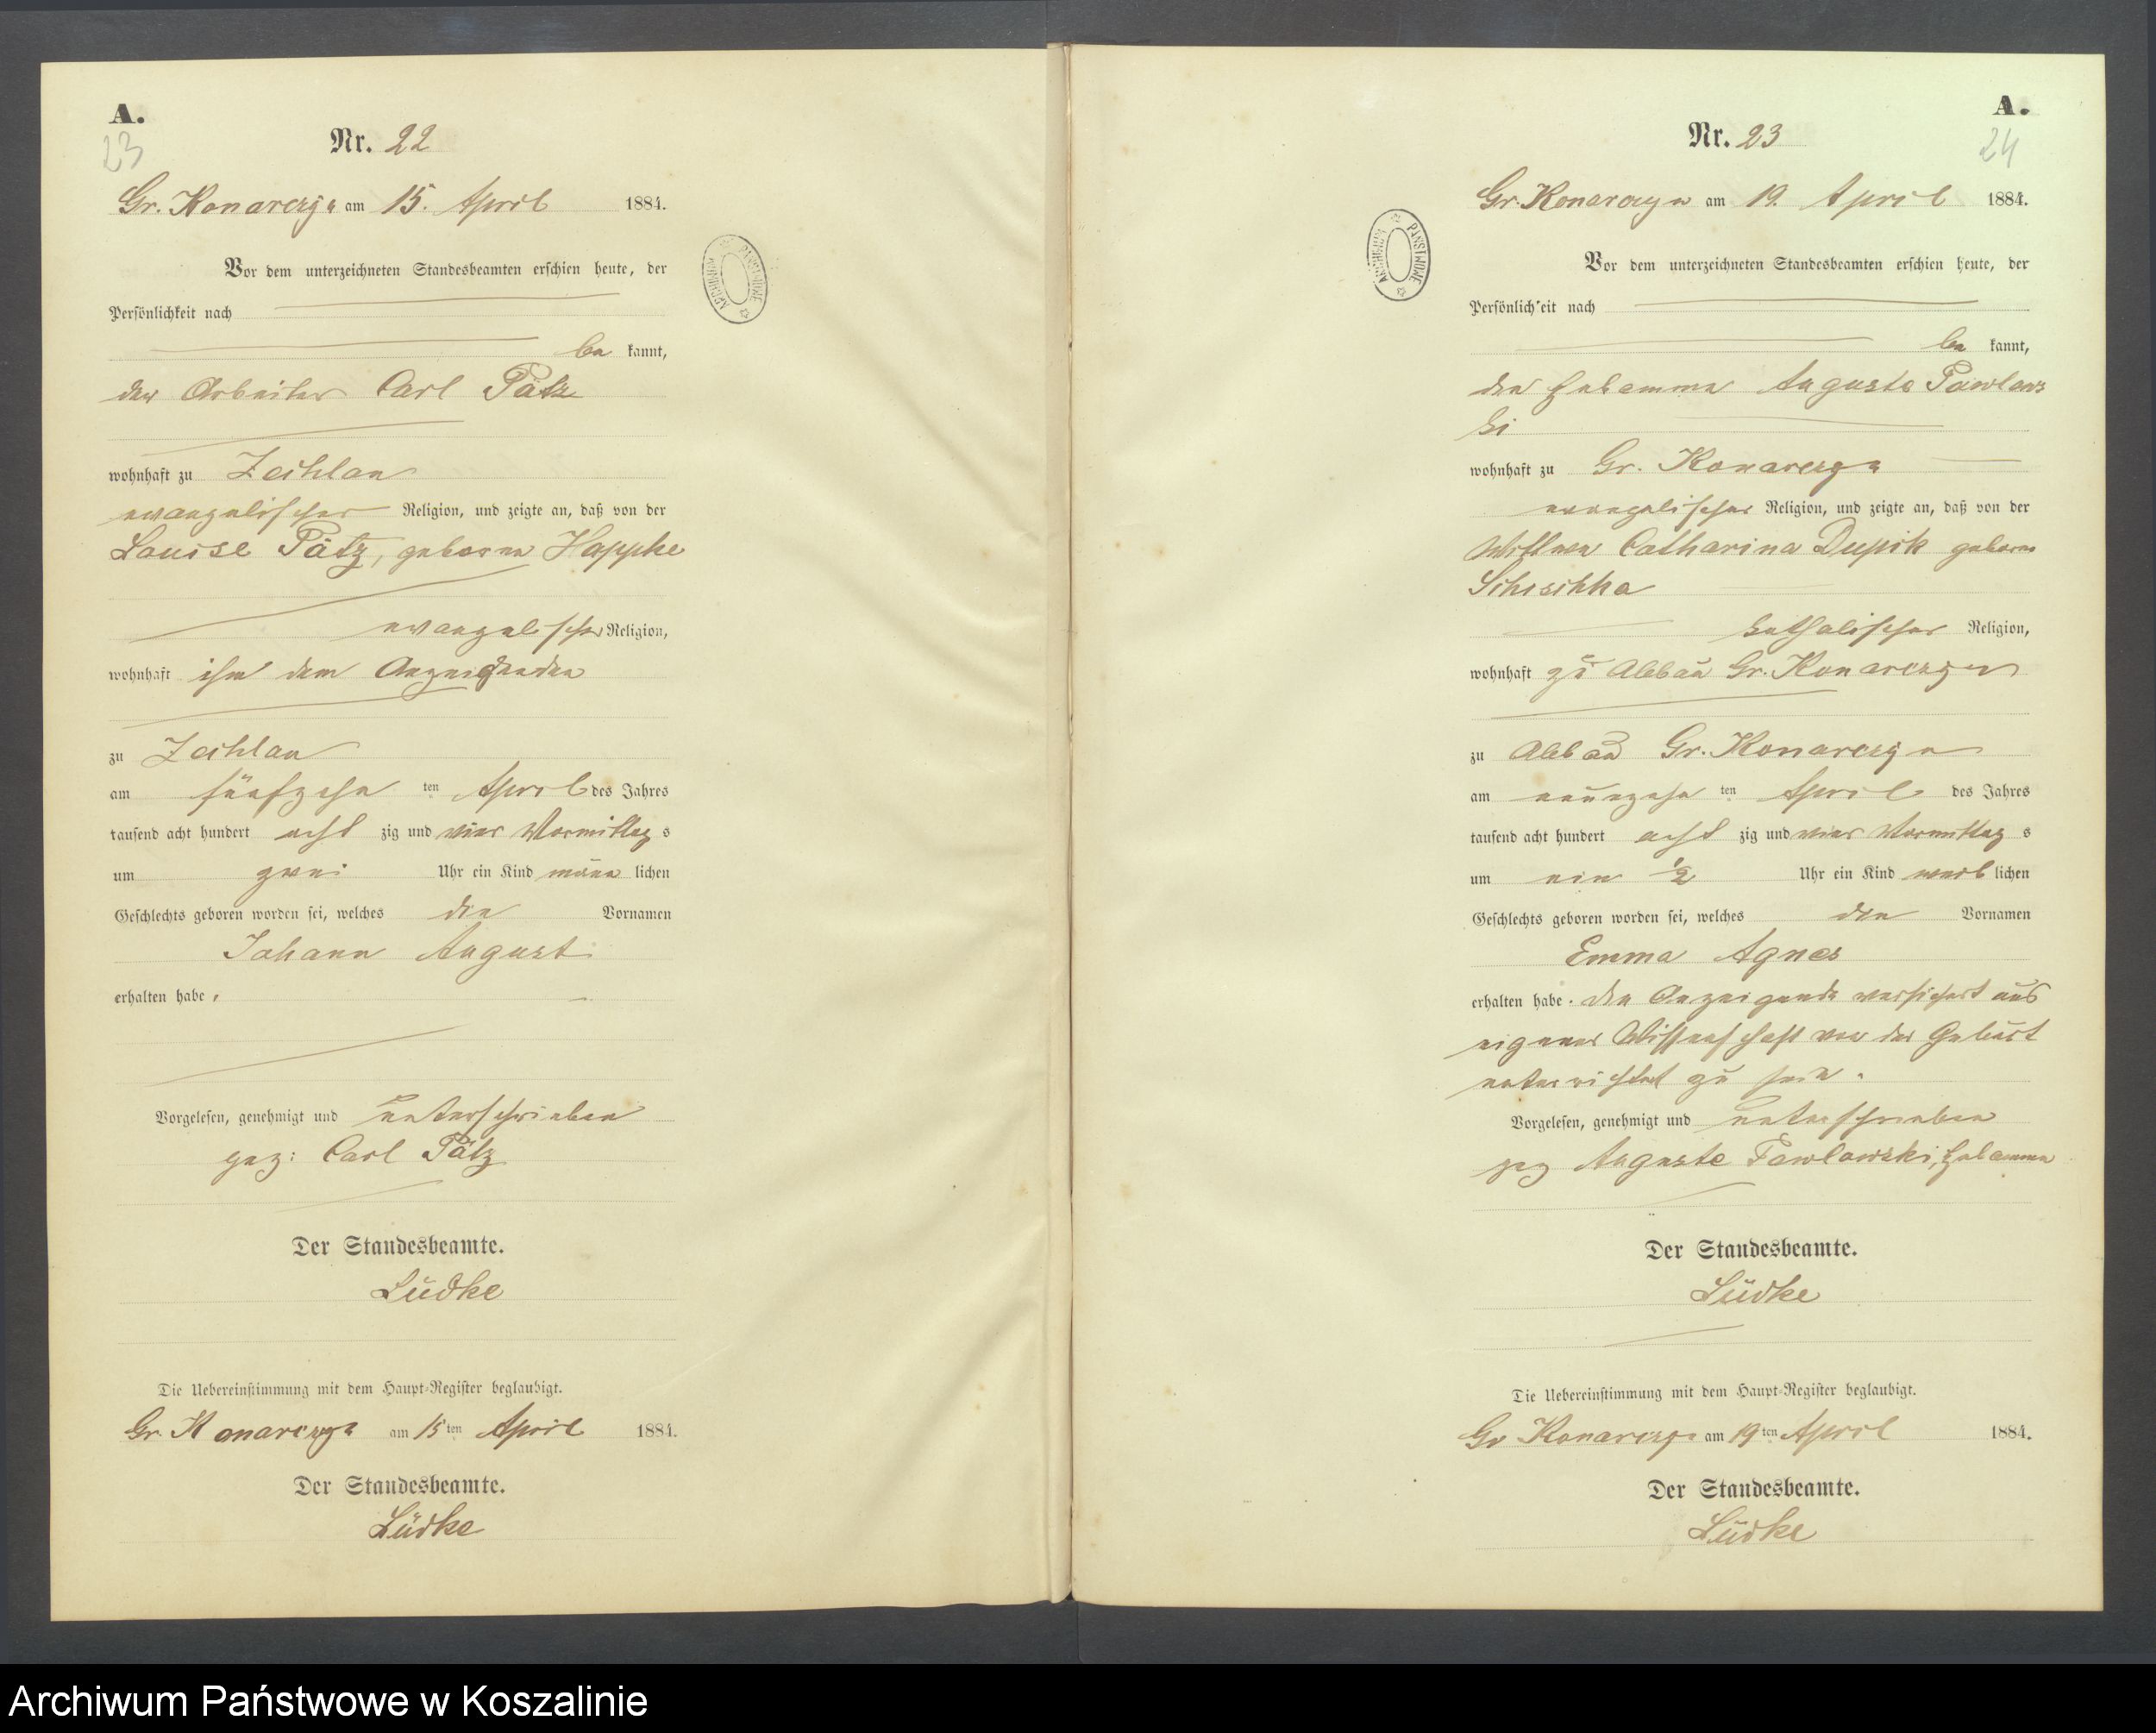 A.
23
Nr. 22
Gr. Konarczyn am 15. April 1884.
Vor dem unterzeichneten Standesbeamten erschien heute, der
Persönlichkeit nach
be kannt,
der Arbeiter Carl Pätz
wohnhaft zu Zechlau
evangelischer Religion, und zeigte an, daß von der
Louise Pätz, geborne Happke
evangelischer Religion,
wohnhaft ihm dem Anzeigenden
zu Zechlau
am fünfzehn ten April des Jahres
tausend acht hundert acht zig und vier Vormittag s
um zwei Uhr ein Kind männ lichen
Geschlechts geboren worden sei, welches die Vornamen
Johann August
erhalten habe.
Vorgelesen, genehmigt und unterschrieben
gez: Carl Pätz
Der Standesbeamte.
Lüdke
Die Uebereinstimmung mit dem Haupt-Register beglaubigt.
Gr. Konarczyn am 15 ten April 1884.
Der Standesbeamte.
Lüdke
ARCHIWUM PAŃSTWOWE
A.
24
Nr. 23
Gr. Konarczyn am 19. April 1884.
Vor dem unterzeichneten Standesbeamten erschien heute, der
Persönlichkeit nach
be kannt,
die Hebamme Auguste Pawlows
ki
wohnhaft zu Gr. Konarczyn
evangelischer Religion, und zeigte an, daß von der
Wittwe Catharina Dupik geborne
katholischer Religion,
wohnhaft zu Abbau Gr. Konarczyn
zu Abbau Gr. Konarczyn
am neunzehn ten April des Jahres
tausend acht hundert acht zig und vier Vormittag s
um ein 1/2 Uhr ein Kind weib lichen
Geschlechts geboren worden sei, welches die Vornamen
Emma Agnes
erhalten habe. Die Anzeigende versichert aus
eigener Wissenschaft von der Geburt
unterrichtet zu sein.
Vorgelesen, genehmigt und unterschrieben
gez Auguste Pawlowski, Hebamme
Der Standesbeamte.
Lüdke
Die Uebereinstimmung mit dem Haupt-Register beglaubigt.
Gr Konarczyn am 19 ten April 1884.
Der Standesbeamte.
Lüdke
ARCHIWUM PAŃSTWOWE
Archiwum Państwowe w Koszalinie